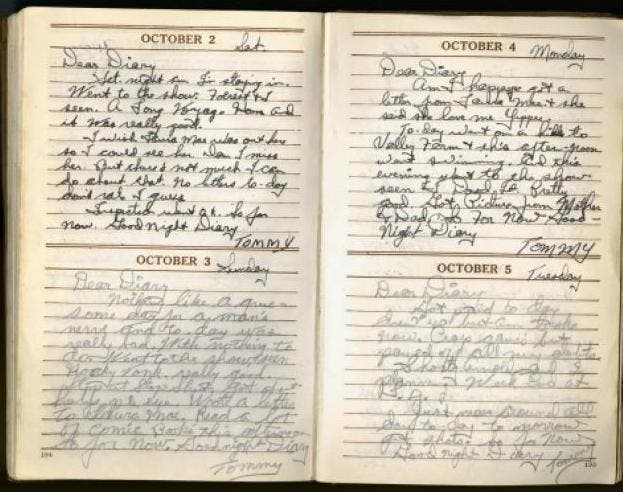 OCTOBER 2 Sat.
Dear Diary
night am I'm staying in.
Went to the show. Forest & I
seen. A Long Voyage Home and
it was really good.
I wish Laura Mae was out here
so I could see her. I miss
her. But there's not much I can
do about that. No letters to-day
I guess
went at. So for
now. Good night Diary
TOMMY
OCTOBER 3 Sunday
Dear Diary
Nothing like a
some day for a man's
nerves and to-day was
really bad. With nothing to
do. Went to the show, seen
Honky Tonk. really good.
Got
eye. Wrote a letter
to Laura Mae. Read a lot
of comic Books this afternoon
So for Now. Good night Diary
Tommy
194
OCTOBER 4 Monday
Dear Diary
Am I happy got a
letter from Laura Mae & she
said she love me Yippey.
To-day went on a hike to
Valley Farm & this after-noon
went swimming. And this
evening went to the show
seen Pretty
good. Got Picture from Mother
& Dad. For Now Good-
Night Diary
TOMMY
OCTOBER 5 Tuesday
Dear Diary
Got paid to-day
Crap game but
paid off all my debts.
& I
at
Just mess around all
day to-day to-morrow
photos. so for Now
Good night Diary Tommy
195